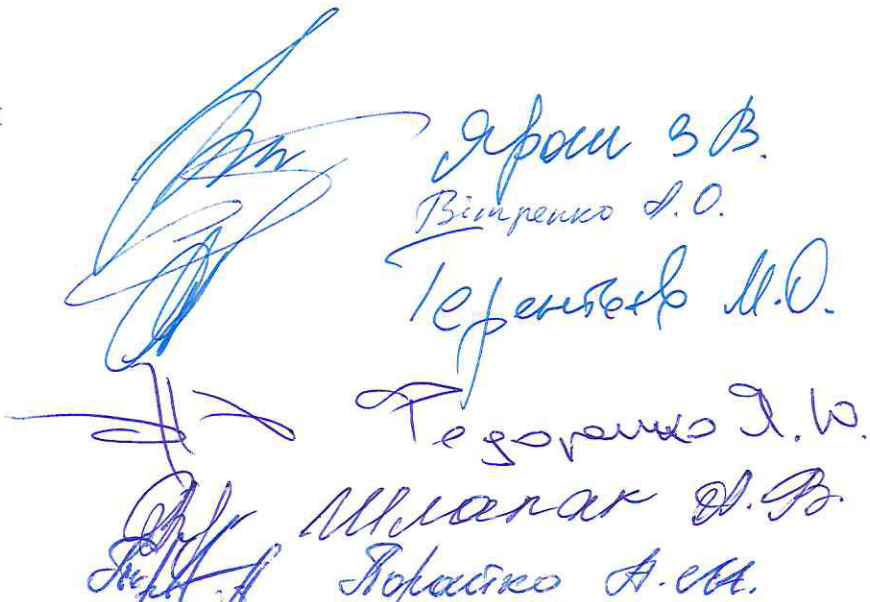 Ярош З В.
Вітренко А.О.
Терентьєв М.О.
Федоренко Я.Ю.
Шлапак А.В.
А.М.